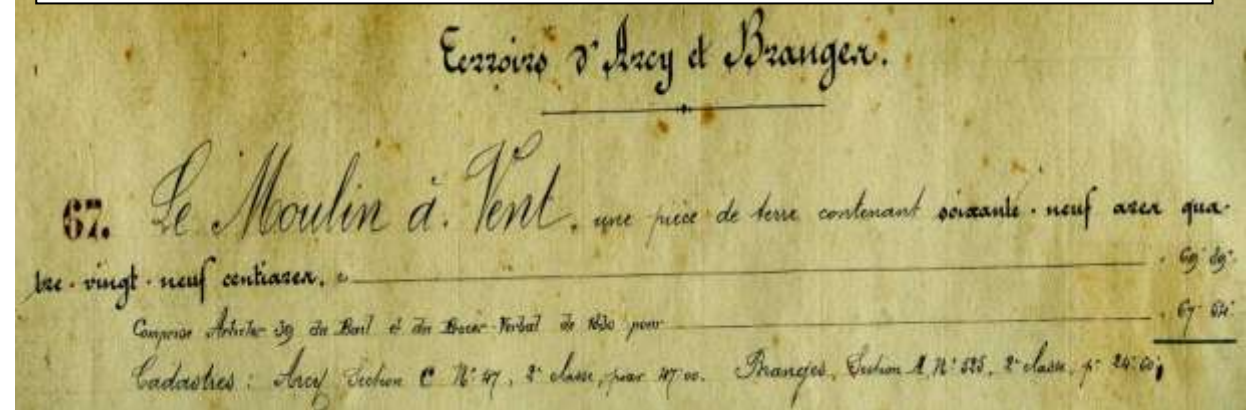 Terroirs d'Arcy et Branges.
67. Le Moulin à Vent, une pièce de terre contenant soixante-neuf ares qua-
tre-vingt-neuf centiares. 69 89
Comprise Article 39 du Bail et du Procès-Verbal de 1830 pour 67 64
Cadastres : Arcy, Section C N° 47, 2e classe, pour 47 00. Branges, Section A, N° 525, 2e classe, pr 24 60